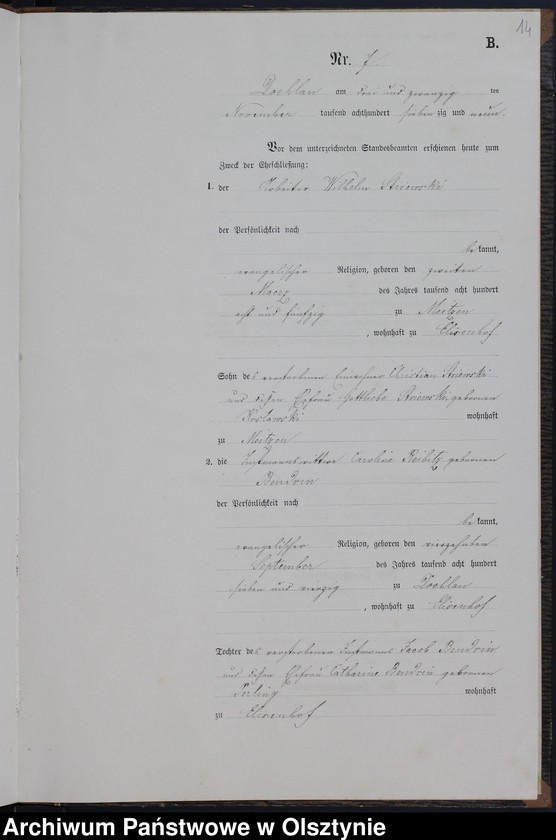 14
B.
Nr. 7
Doehlau am drei und zwanzig ten
November tausend achthundert sieben zig und neun.
Vor dem unterzeichneten Standesbeamten erschienen heute zum
Zweck der Eheschließung:
1. der Arbeiter Wilhelm Striewski
der Persönlichkeit nach
be kannt,
evangelischer Religion, geboren den zweiten
Maerz des Jahres tausend acht hundert
acht und fünfzig zu Meitzen
, wohnhaft zu Elisenhof
Sohn des verstorbenen Einwohner Christian Striewski
und dessen Ehefrau Gottliebe Striewski, gebornen
Koslowski wohnhaft
zu Meitzen
2. die Instmannswittwe Caroline Reibitz gebornen
Bendrin
der Persönlichkeit nach
be kannt,
evangelischer Religion, geboren den vierzehnten
September des Jahres tausend acht hundert
sieben und vierzig zu Doehlau
, wohnhaft zu Elisenhof
Tochter des verstorbenen Instmanns Jacob Bendrin
und dessen Ehefrau Catharine Bendrin gebornen
wohnhaft
zu Elisenhof
Archiwum Państwowe w Olsztynie